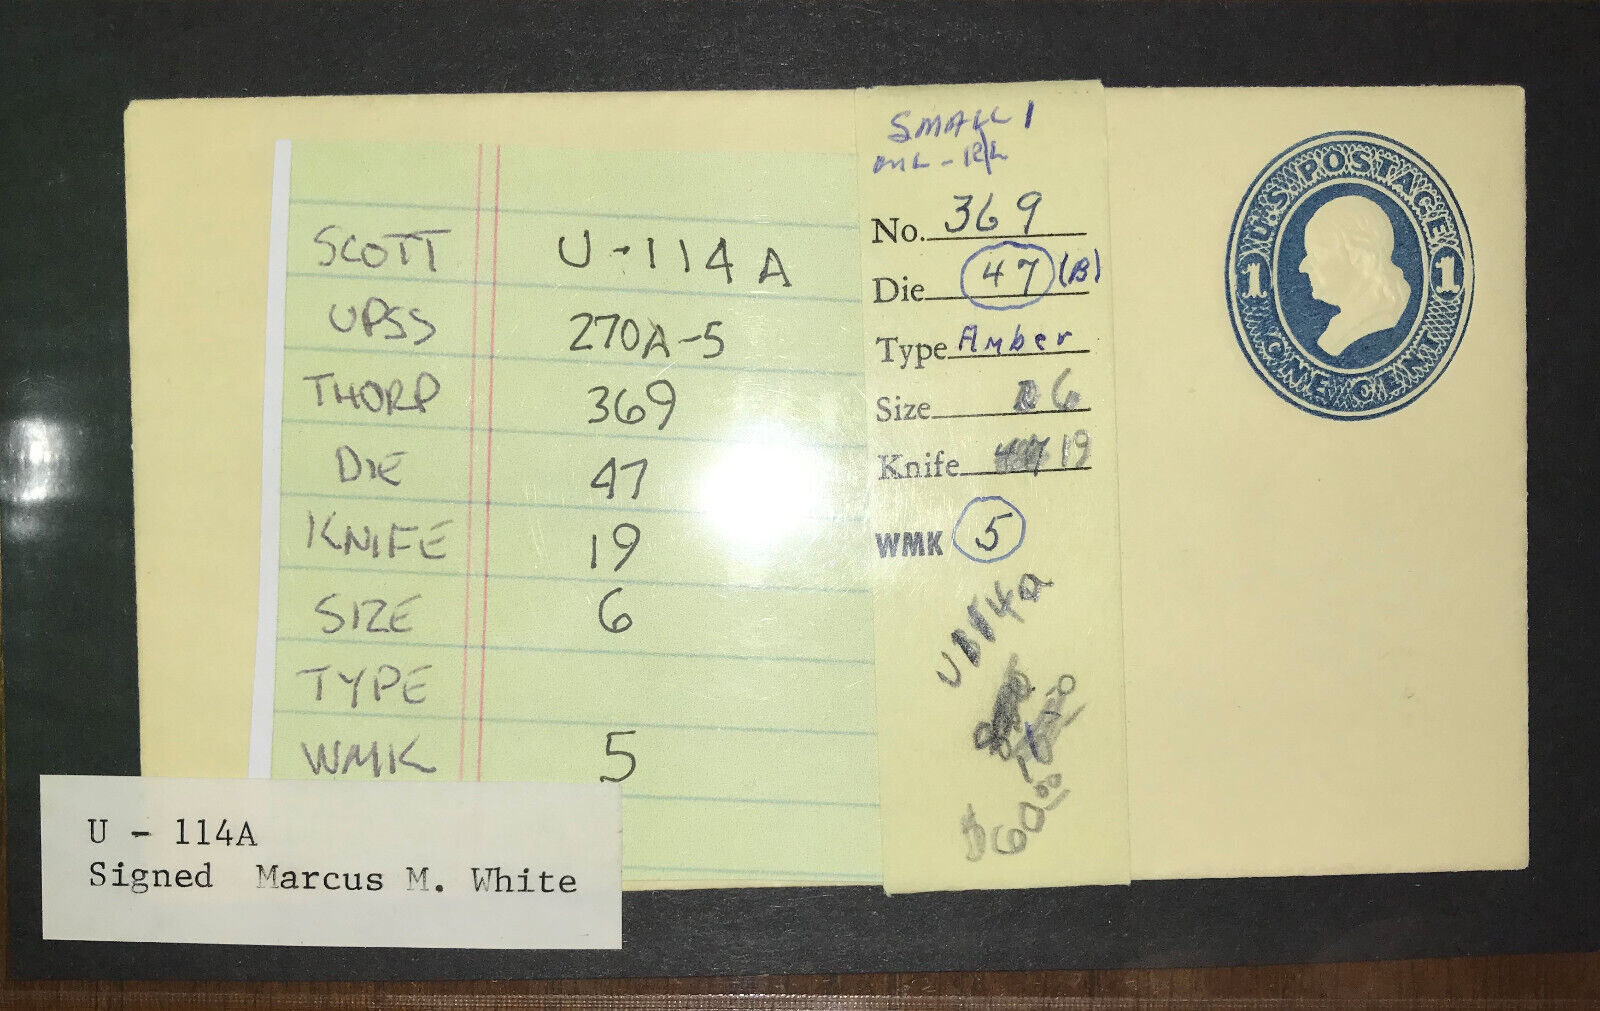 SCOTT U-114A
UPSS 270A-5
THORP 369
DIE 47
KNIFE 19
SIZE 6
TYPE
WMK 5
SMALL 1
No. 369
Die 47 (B)
Type Amber
Size 6
Knife 19
WMK 5
$60.00
U.S. POSTAGE
1 1
ONE CENT
U - 114A
Signed Marcus M. White